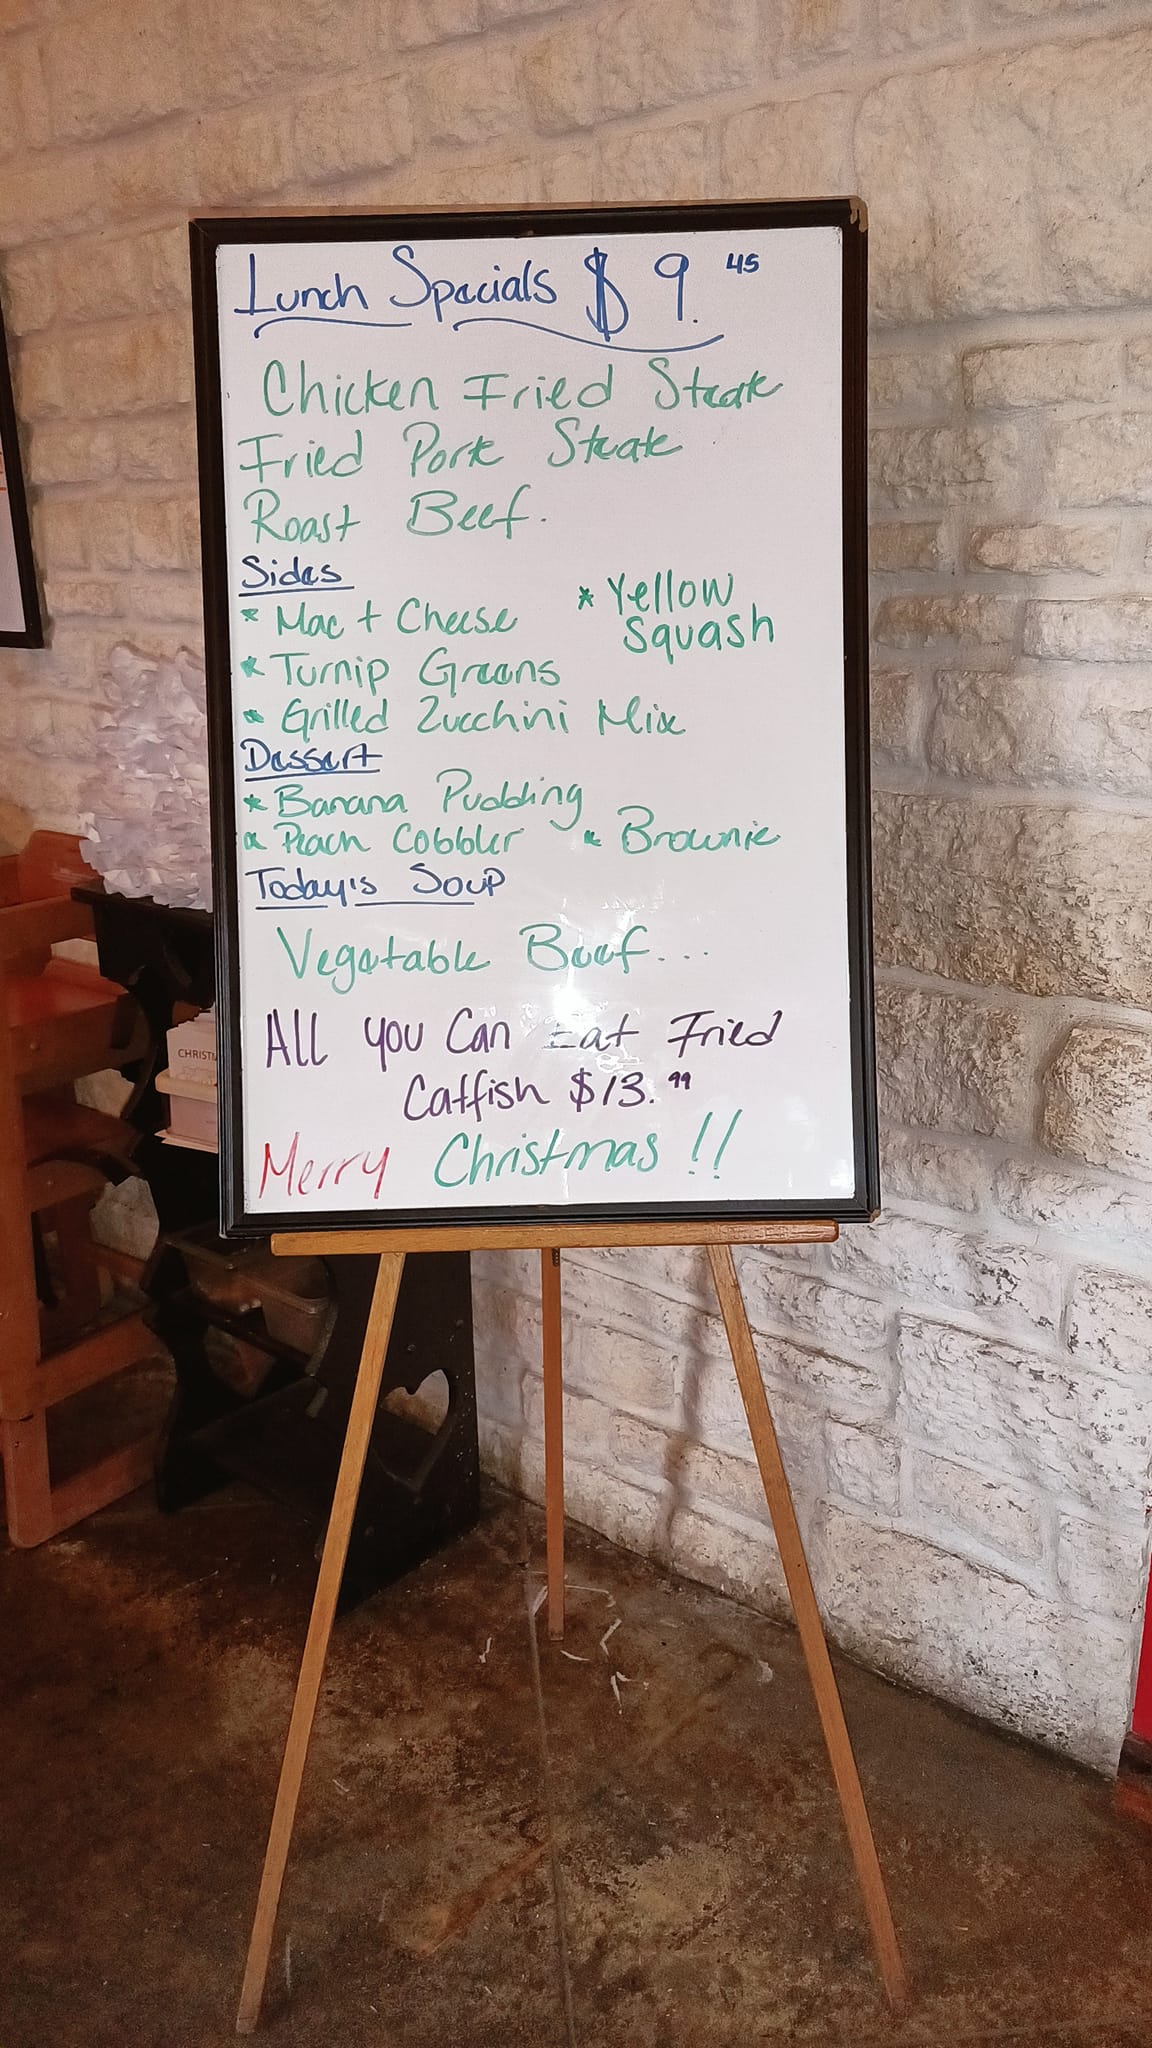 Lunch Specials $9.45
Chicken Fried Steak
Fried Pork Steak
Roast Beef.
Sides
* Mac + Cheese
* Yellow
Squash
* Turnip Greens
* Grilled Zucchini Mix
Dessert
* Banana Pudding
* Peach Cobbler * Brownie
Today's Soup
Vegetable Beef...
All you Can Eat Fried
Catfish $13.99
Merry Christmas!!